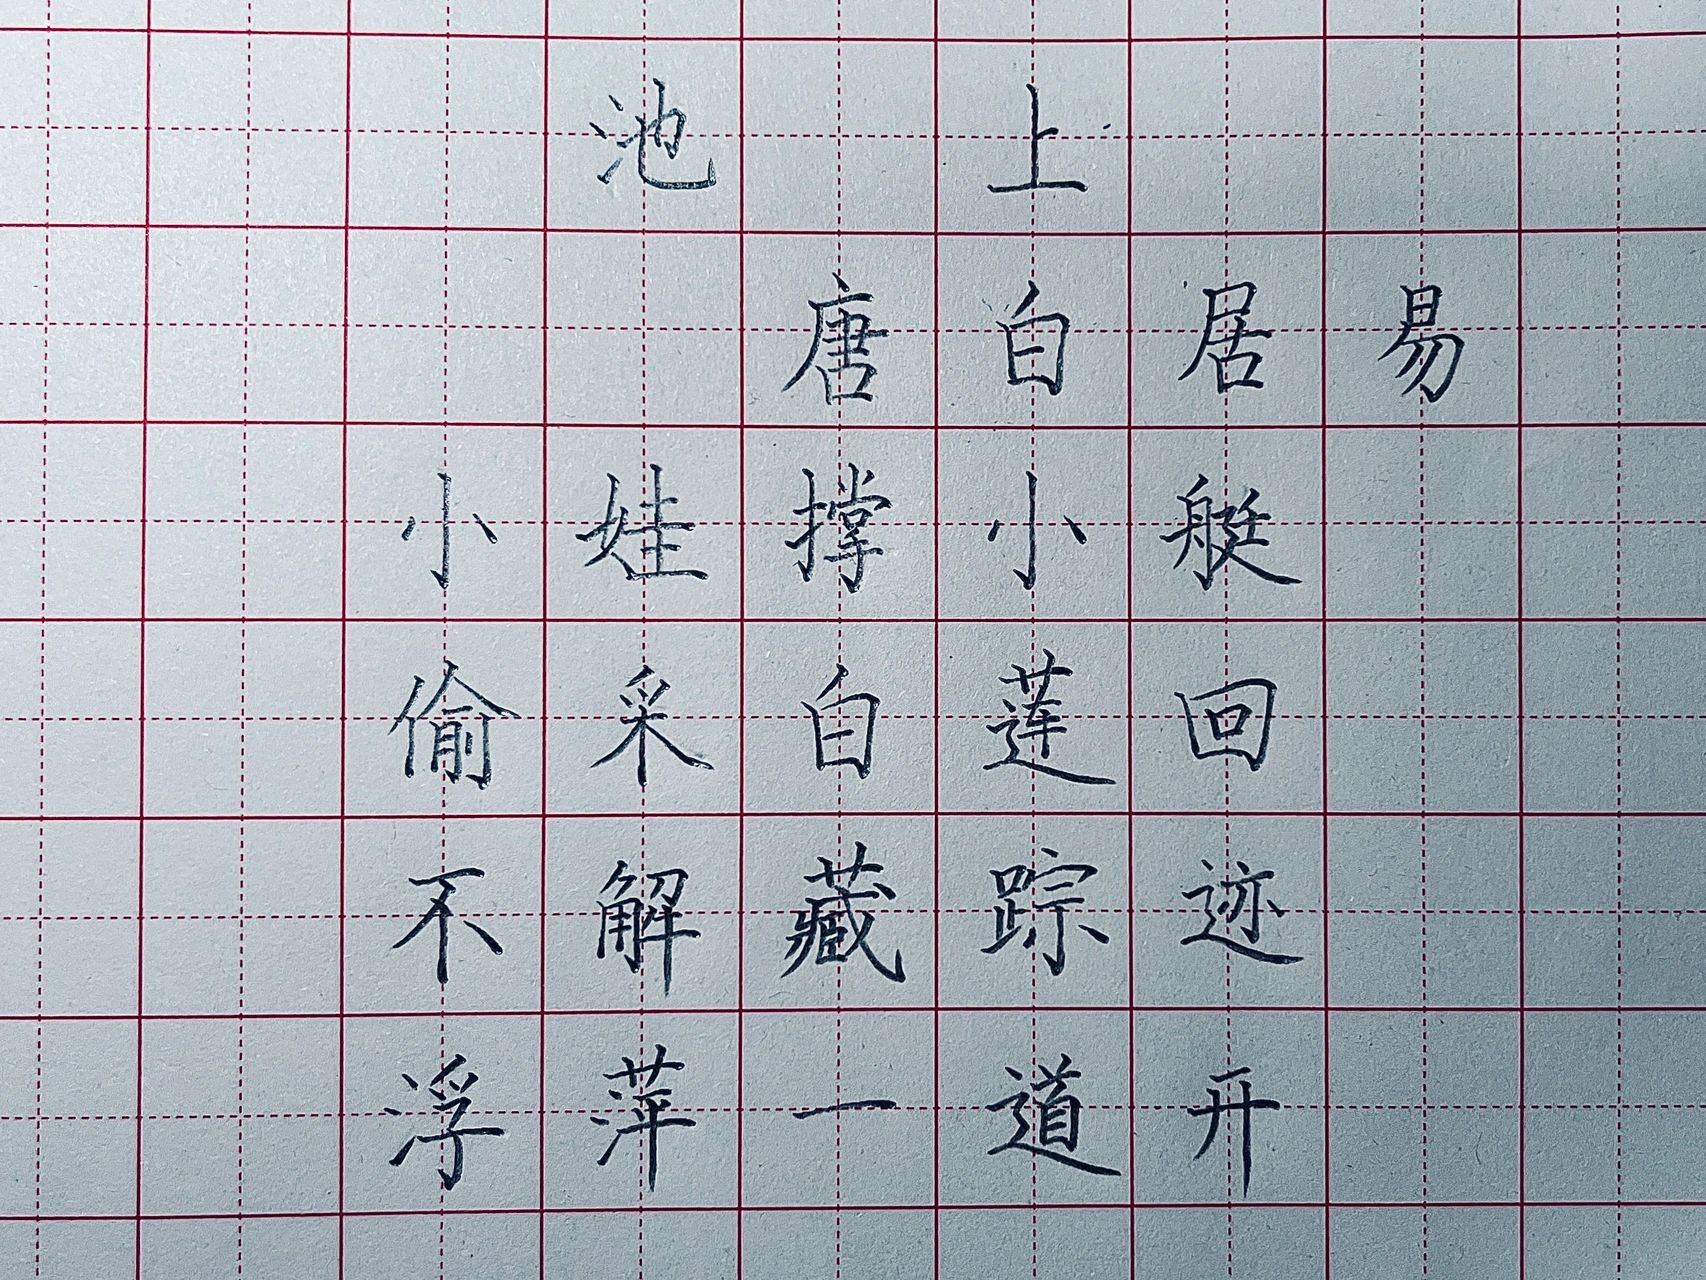 池上
唐白居易
小娃撑小艇
偷采白莲回
不解藏踪迹
浮萍一道开